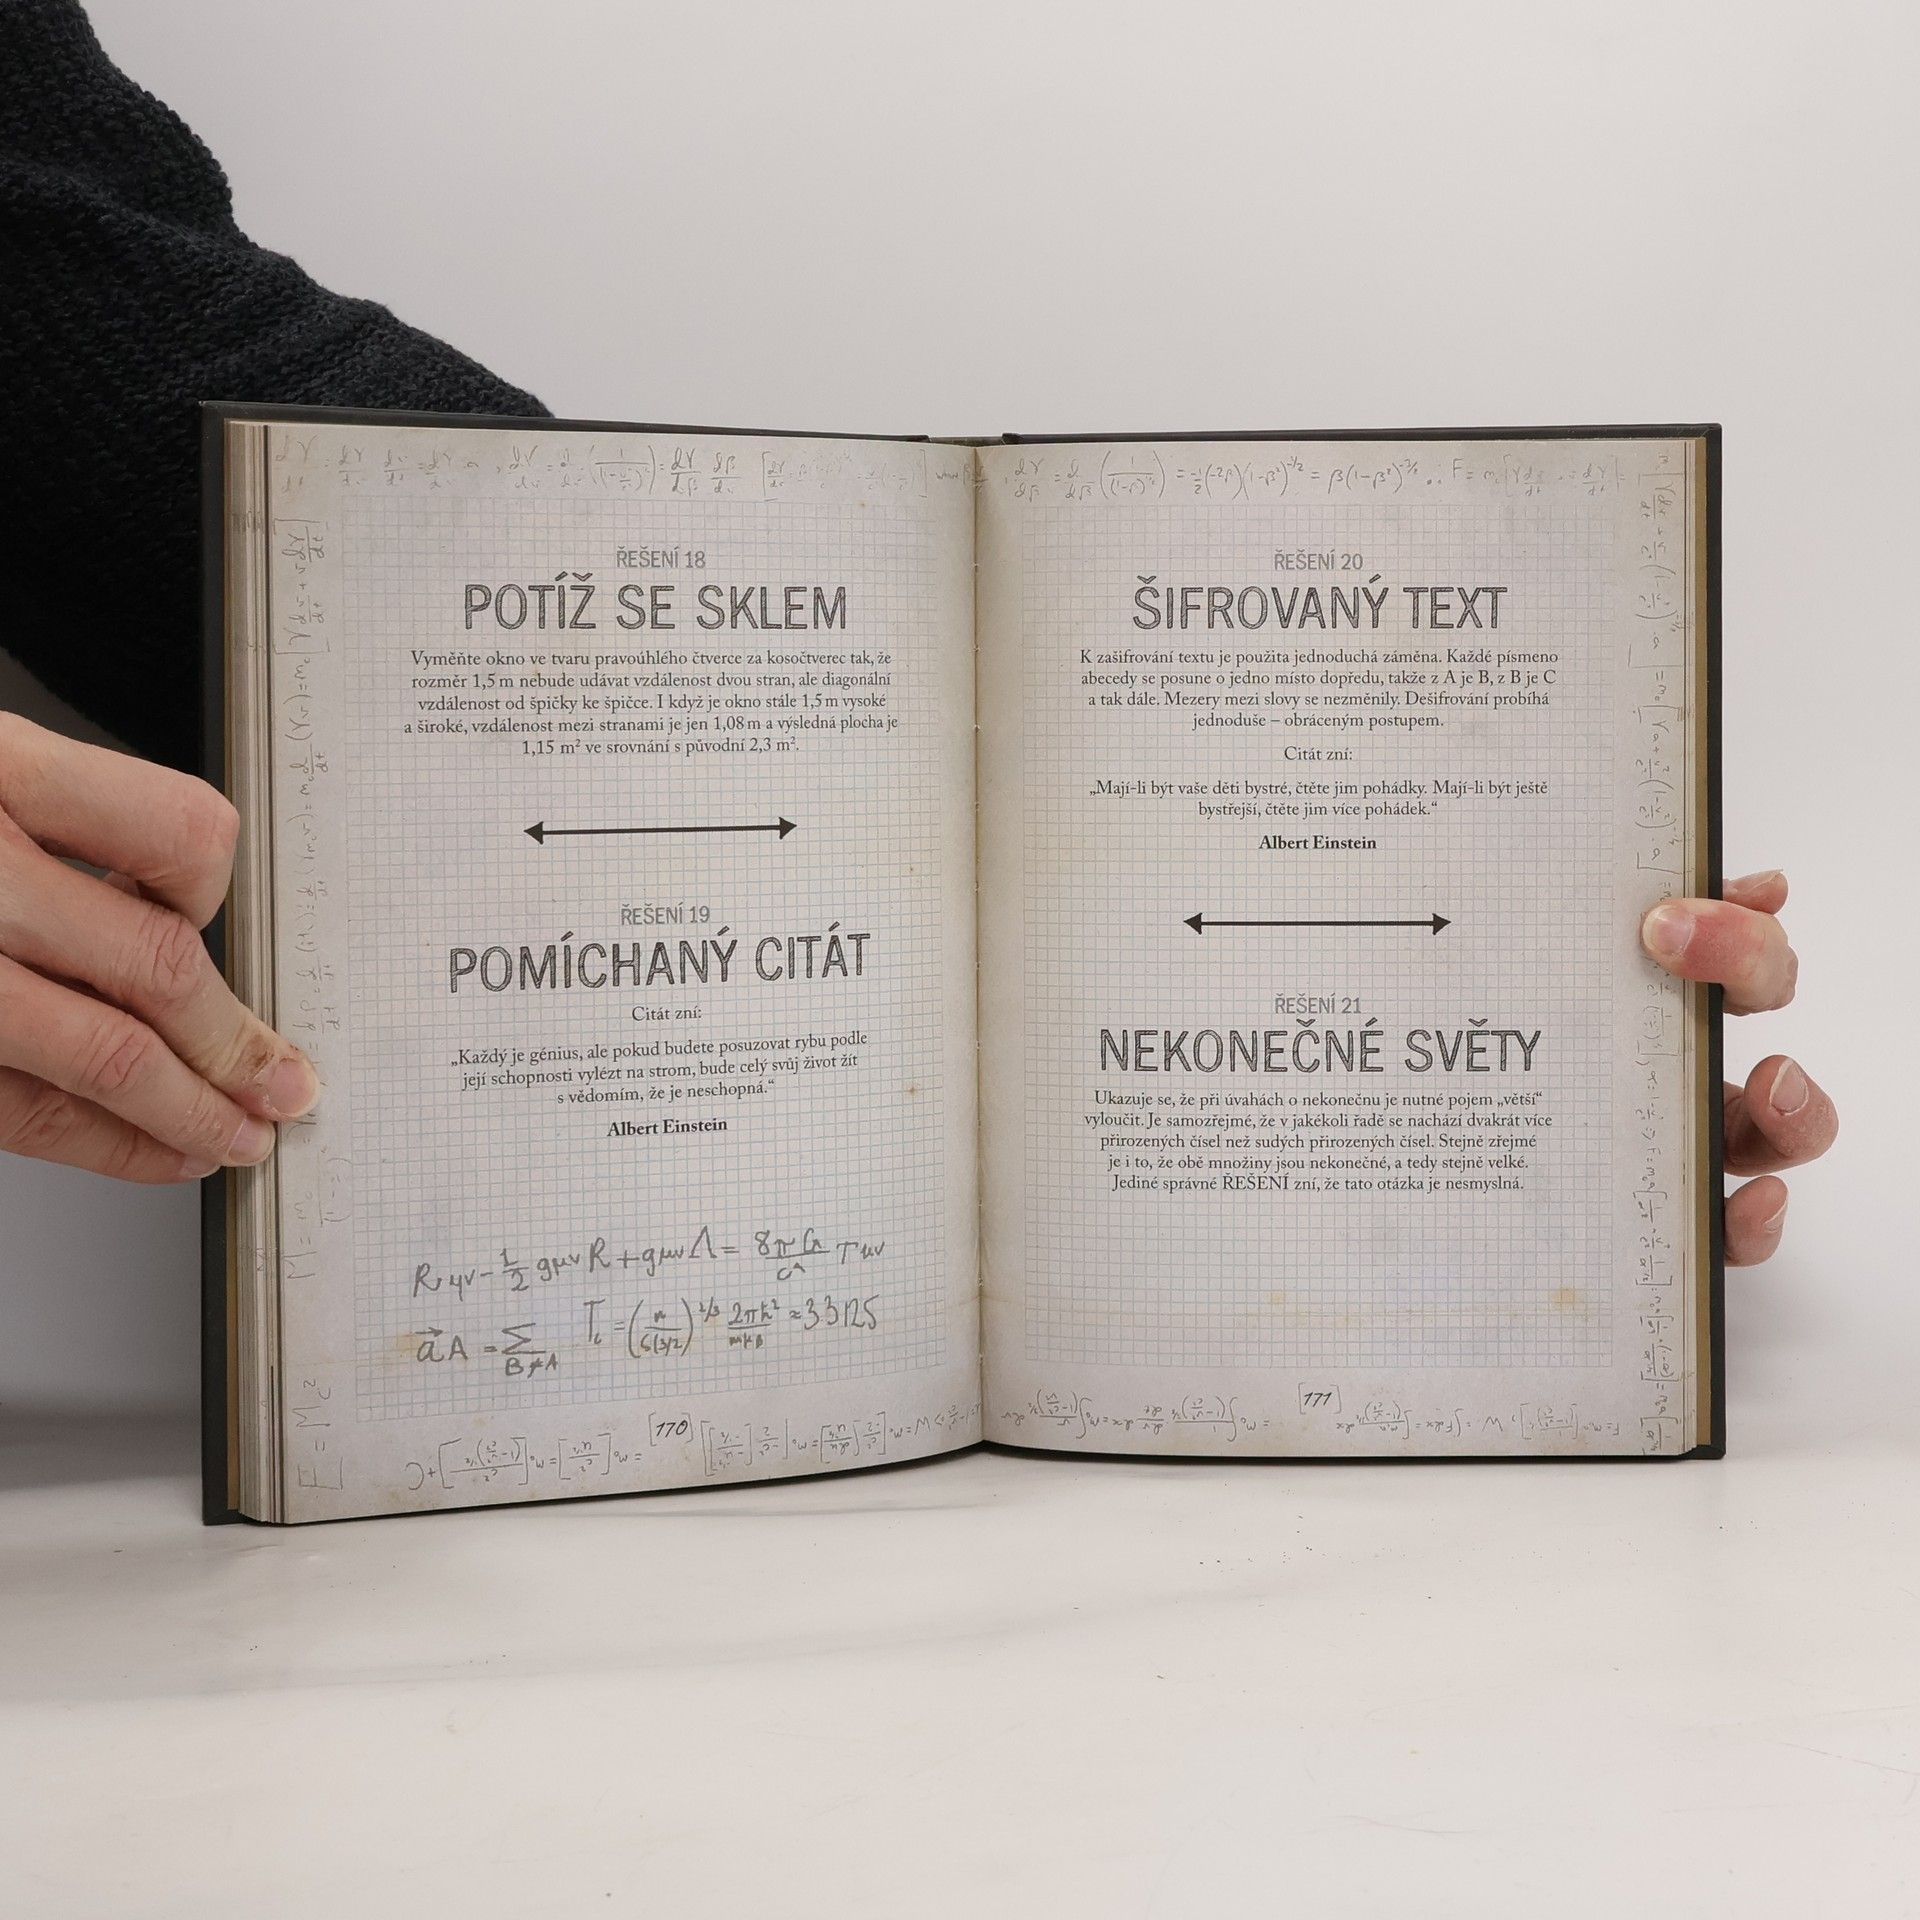 ŘEŠENÍ 18
POTÍŽ SE SKLEM
Vyměňte okno ve tvaru pravoúhlého čtverce za kosočtverec tak, že
rozměr 1,5 m nebude udávat vzdálenost dvou stran, ale diagonální
vzdálenost od špičky ke špičce. I když je okno stále 1,5 m vysoké
a široké, vzdálenost mezi stranami je jen 1,08 m a výsledná plocha je
1,15 m² ve srovnání s původní 2,3 m².
ŘEŠENÍ 19
POMÍCHANÝ CITÁT
Citát zní:
„Každý je génius, ale pokud budete posuzovat rybu podle
její schopnosti vylézt na strom, bude celý svůj život žít
s vědomím, že je neschopná.“
Albert Einstein
[170]
E = Mc²
ŘEŠENÍ 20
ŠIFROVANÝ TEXT
K zašifrování textu je použita jednoduchá záměna. Každé písmeno
abecedy se posune o jedno místo dopředu, takže z A je B, z B je C
a tak dále. Mezery mezi slovy se nezměnily. Dešifrování probíhá
jednoduše – obráceným postupem.
Citát zní:
„Mají-li být vaše děti bystré, čtěte jim pohádky. Mají-li být ještě
bystřejší, čtěte jim více pohádek.“
Albert Einstein
ŘEŠENÍ 21
NEKONEČNÉ SVĚTY
Ukazuje se, že při úvahách o nekonečnu je nutné pojem „větší“
vyloučit. Je samozřejmé, že v jakékoli řadě se nachází dvakrát více
přirozených čísel než sudých přirozených čísel. Stejně zřejmé
je i to, že obě množiny jsou nekonečné, a tedy stejně velké.
Jediné správné ŘEŠENÍ zní, že tato otázka je nesmyslná.
[171]